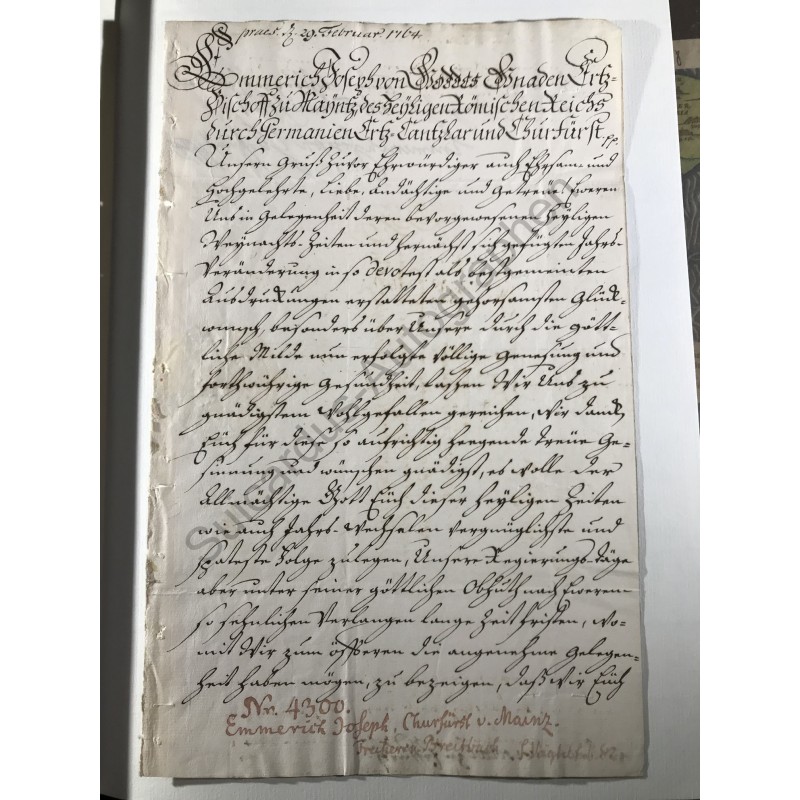 praes. d. 29. Februar 1764
Emmerich Joseph von Gottes Gnaden Ertz-
Bischoff zu Mayntz, des heyligen Römischen Reichs
durch Germanien Ertz-Cantzlar und Churfürst pp.
Unsern Gruß zuvor Ehrwürdiger auch Ehrsam- und
Hochgelehrte, liebe, andächtige und Getreüe! Eweren
Uns in Gelegenheit deren bevorgewesenen heyligen
Weynachts-Zeiten und hernächst sich gefügten Jahrs-
Veränderung in so devotest als bestgemeinten
Ausdruckungen erstatteten gehorsamsten Glück-
wunsch, besonders über Unsere durch die Gött-
liche Milde nun erfolgte völlige Genesung und
forthwührige Gesundheit, lassen Wir Uns zu
gnädigstem Wohlgefallen gereichen, Wir dancken
Euch für diese so aufrichtig hegende treüe Ge-
sinnung und wünschen gnädigst, es wolle der
Allmächtige Gott Euch dieser heyligen Zeiten
wie auch Jahrs-Wechselen vergnüglichste und
späteste Folge zulegen, Unsere Regierungs-Täge
aber unter seiner göttlichen Obhuth nach Ewerem
so sehnlichen Verlangen lange Zeit fristen, wo-
mit Wir zum öffteren die angenehme Gelegen-
heit haben mögen, zu bezeigen, daß Wir Euch
Nr. 4300.
Emmerich Joseph, Churfürst v. Mainz.
Freiherr Breitbach
Suitardus-Autographen